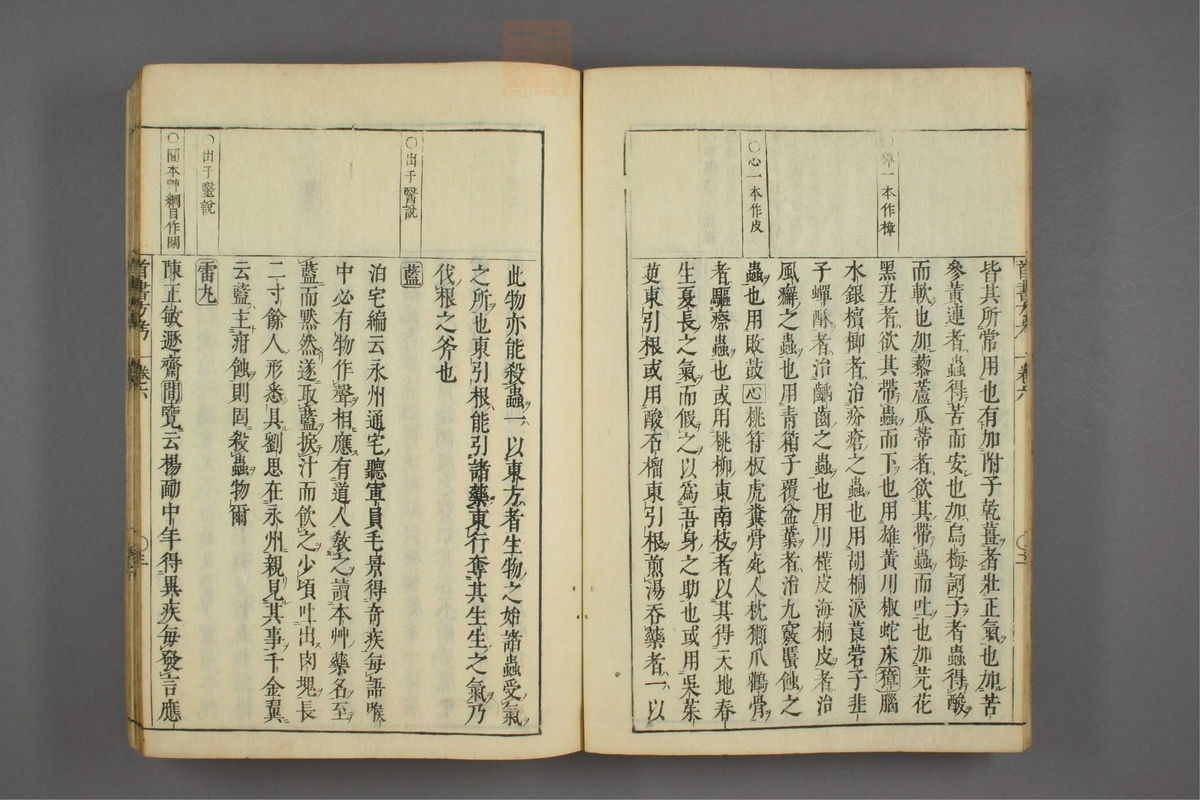 ○獐一本作樟
○心一本作皮
皆其所常用也有加附子乾薑者壯正氣也加苦
參黃連者蟲得苦而安也加烏梅訶子者蟲得酸
而軟也加藜蘆瓜蒂者欲其帶蟲而吐也加芫花
黑丑者欲其帶蟲而下也用雄黃川椒蛇床獐腦
水銀檳榔者治疥瘡之蟲也用胡桐淚莨菪子韭
子蟬酥者治齲齒之蟲也用川槿皮海桐皮者治
風癬之蟲也用青箱子覆盆葉者治九竅䘌蝕之
蟲也用敗鼓心桃符板虎糞骨死人枕獺爪鸛骨
者驅瘵蟲也或用桃柳東南枝者以其得天地春
生夏長之氣而假之以爲吾身之助也或用吳茱
萸東引根或用酸石榴東引根煎湯吞藥者一以
首書方考 卷六
○出于醫說
○出于醫說
○閒本艸綱目作閑
此物亦能殺蟲一以東方者生物之始諸蟲受氣
之所也東引根能引諸藥東行奪其生生之氣乃
伐根之斧也
藍
泊宅編云永州通宅聽軍員毛景得奇疾每語喉
中必有物作聲相應有道人教之讀本艸藥名至
藍而默然遂取藍捩汁而飲之少頃吐出肉塊長
二寸餘人形悉具劉思在永州親見其事千金翼
云藍主疳蝕則固殺蟲物爾
雷丸
陳正敏遯齋閒覽云楊勔中年得異疾每發言應
首書方考 卷六